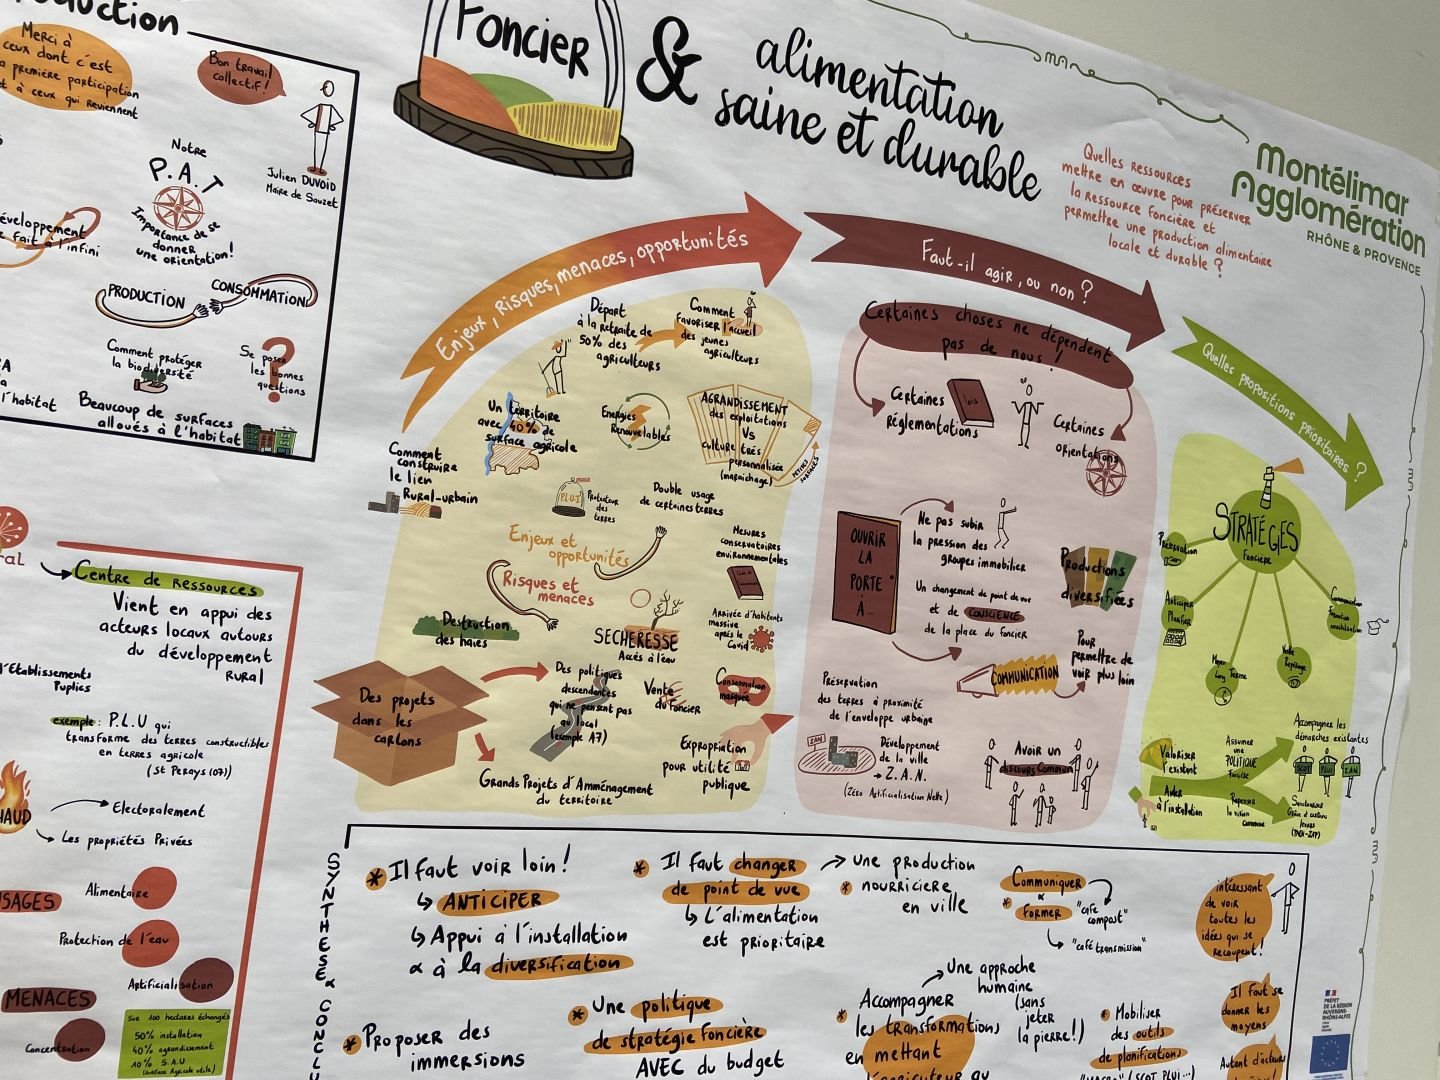 Merci à
ceux dont c'est
la première participation
et à ceux qui reviennent
Bon travail
collectif!
Julien DUVOID
Maire de Sauzet
Notre
P.A.T
Importance de se
donner
une orientation!
développement
se fait à l'infini
PRODUCTION
CONSOMMATION
Comment protéger
la biodiversité
Se poser
les bonnes
questions
?
l'habitat
Beaucoup de surfaces
alloués à l'habitat
Foncier
&
alimentation
saine et durable
Quelles ressources
mettre en œuvre pour préserver
la ressource foncière et
permettre une production alimentaire
locale et durable ?
Montélimar
Agglomération
RHÔNE & PROVENCE
Enjeux, Risques, menaces, opportunités
Départ
à la retraite de
50% des
agriculteurs
Comment
favoriser l'accueil
des jeunes
agriculteurs
Un territoire
avec 40% de
surface agricole
Energies
Renouvelables
AGRANDISSEMENT
des exploitations
Vs
culture très
personnalisée
(maraichage)
PETITES
SURFACES
Comment
construire
le lien
Rural-urbain
PLUI
Protecteur
des
terres
Double usage
de certaines terres
Enjeux et
opportunités
Mesures
conservatoires
environnementales
Risques et
menaces
Destruction
des haies
SECHERESSE
Accès à l'eau
Arrivée d'habitants
massive
après le
Covid
Des projets
dans les
cartons
Des politiques
descendantes
qui ne pensent pas
au local
(exemple A7)
Vente
du foncier
Consommation
masquée
Expropriation
pour utilité
publique
Grands Projets d'Amménagement
du territoire
Faut-il agir, ou non ?
Certaines choses ne dépendent
pas de nous !
Certaines
Réglementations
lois
Certaines
orientations
OUVRIR
LA
PORTE
À...
Ne pas subir
la pression des
groupes immobilier
Un changement de point de vue
et de CONSCIENCE
de la place du foncier
Productions
diversifiées
COMMUNICATION
Pour
permettre de
voir plus loin
Préservation
des terres à proximité
de l'enveloppe urbaine
ZAN
Développement
de la ville
→ Z.A.N.
(Zéro Artificialisation Nette)
Avoir un
discours Commun
Quelles propositions prioritaires ?
STRATÉGIES
foncière
Préservation
Anticiper
Planifier
Moyen
Long Terme
Veille
Repérage
Communication
Formation
sensibilisation
Valoriser
l'existant
Aider
à l'installation
Assumer
une
POLITIQUE
Foncière
Repenser
la vision
commune
Accompagner les
démarches existantes
SCOT
PLUI
ZAN
ral
Centre de ressources
Vient en appui des
acteurs locaux autours
du développement
Rural
l'Etablissements
Puplics
exemple : P.L.U qui
transforme des terres constructibles
en terres agricole
(St Perays (07))
HAUD
Electoralement
Les propriétés Privées
USAGES
Alimentaire
Protection de l'eau
Artificialisation
MENACES
Concentration
Sur 100 hectares échangés
50% installation
40% agrandissement
10% S.A.U
(surface Agricole utile)
SYNTHÈSE & CONCLU
* Il faut voir loin !
↳ ANTICIPER
↳ Appui à l'installation
& à la diversification
* Proposer des
immersions
* Il faut changer
de point de vue
↳ L'alimentation
est prioritaire
* Une politique
de stratégie foncière
AVEC du budget
→ Une production
* nourriciere
en ville
* Communiquer
&
former
"café
compost"
"café transmission"
Une approche
humaine
(sans
jeter
la pierre!)
* Accompagner
les transformations
en mettant
l'agriculteur au
* Mobiliser
des outils
de planification
"MACRO" (SCOT PLUI...)
intéressant
de voir
toutes les
idées qui se
recoupent!
Il faut se
donner les
moyens
Autant d'acteurs
PRÉFET
DE LA RÉGION
AUVERGNE-
RHÔNE-ALPES